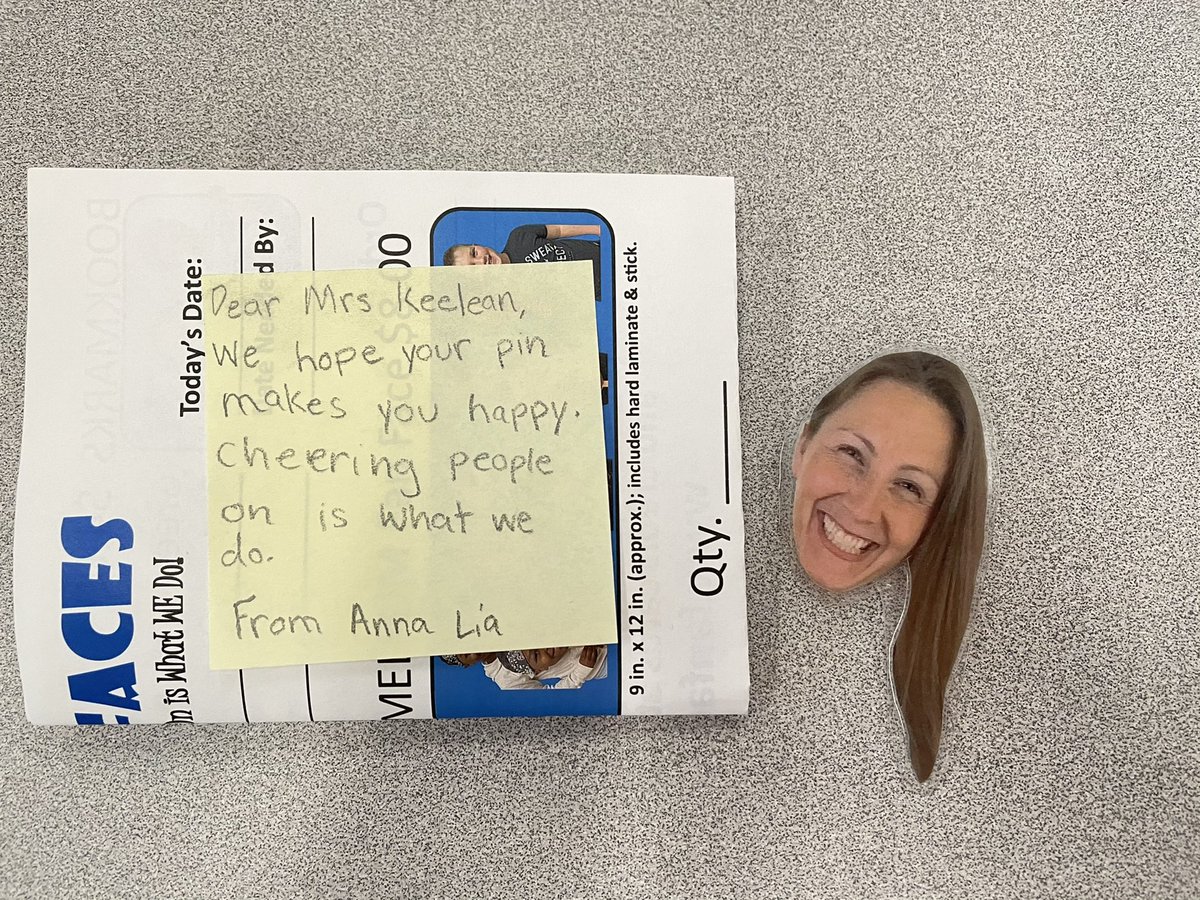 Dear Mrs Keelean,
We hope your pin
makes you happy.
Cheering people
on is what we
do.
From Anna Lia
FACES
n is What WE Do!
Today's Date:
d By:
00
9 in. x 12 in. (approx.); includes hard laminate & stick.
Qty.